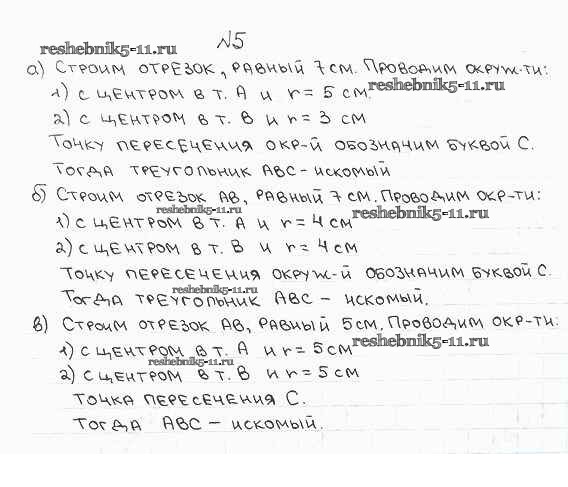 reshebnik5-11.ru
№5
а) Строим отрезок, равный 7 см. Проводим окруж-ти:
reshebnik5-11.ru
1) с центром в т. А и r = 5 см.
2) с центром в т. В и r = 3 см
Точку пересечения окр-й обозначим буквой С.
Тогда треугольник АВС - искомый
б) Строим отрезок АВ, равный 7 см. Проводим окр-ти:
reshebnik5-11.ru
reshebnik5-11.ru
1) с центром в т. А и r = 4 см
2) с центром в т. В и r = 4 см
Точку пересечения окруж-й обозначим буквой С.
reshebnik5-11.ru
Тогда треугольник АВС - искомый.
в) Строим отрезок АВ, равный 5 см. Проводим окр-ти:
reshebnik5-11.ru
1) с центром в т. А и r = 5 см
reshebnik5-11.ru
2) с центром в т. В и r = 5 см
Точка пересечения С.
Тогда АВС - искомый.